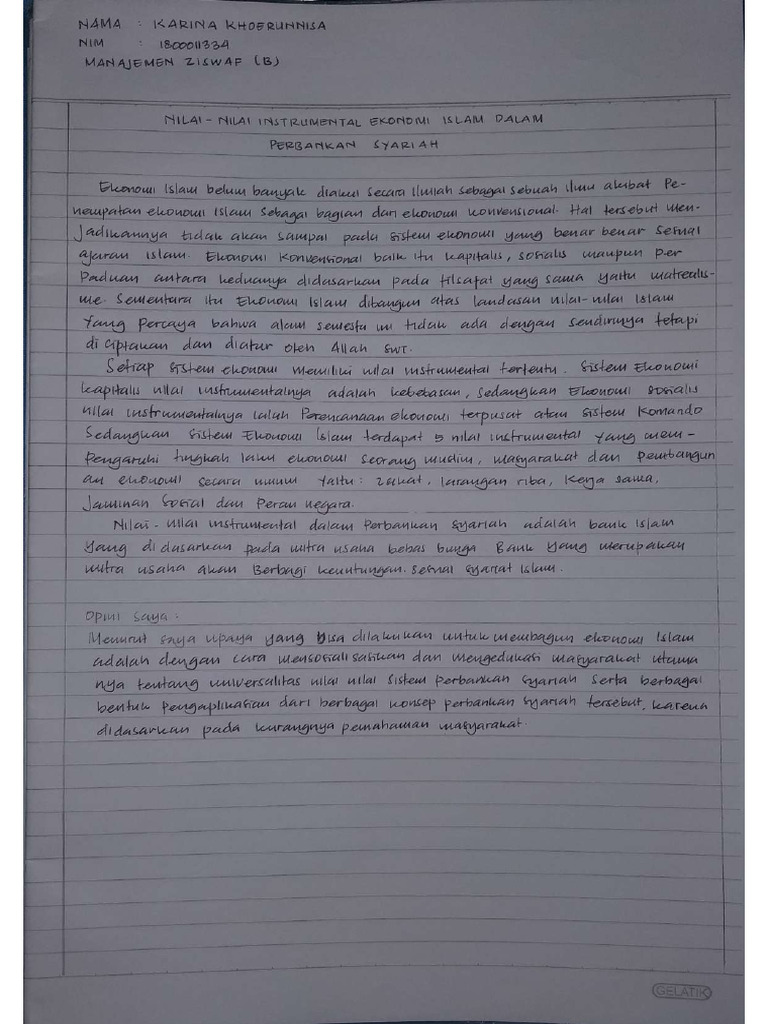 NAMA : KARINA KHOERUNNISA
NIM : 1800011334
MANAJEMEN ZISWAF (B)
NILAI - NILAI INSTRUMENTAL EKONOMI ISLAM DALAM
PERBANKAN SYARIAH
Ekonomi Islam belum banyak diakui secara ilmiah sebagai sebuah ilmu akibat Pe-
nempatan ekonomi Islam sebagai bagian dari ekonomi konvensional. Hal tersebut men-
jadikannya tidak akan sampai pada sistem ekonomi yang benar benar sesuai
ajaran islam. Ekonomi Konvensional baik itu kapitalis, sosialis maupun per
paduan antara keduanya didasarkan pada filsafat yang sama yaitu matrealis-
me. Sementara itu Ekonomi Islam dibangun atas landasan nilai-nilai Islam
yang percaya bahwa alam semesta ini tidak ada dengan sendirinya tetapi
di ciptakan dan diatur oleh Allah SWT.
Setiap sistem ekonomi memiliki nilai instrumental tertentu. Sistem Ekonomi
kapitalis nilai instrumentalnya adalah kebebasan, sedangkan Ekonomi sosialis
nilai instrumentalnya ialah Perencanaan ekonomi terpusat atau sistem Komando
Sedangkan Sistem Ekonomi Islam terdapat 5 nilai instrumental yang mem-
pengaruhi tingkah laku ekonomi seorang muslim, masyarakat dan pembangun
an ekonomi secara umum yaitu : zakat, larangan riba, Kerja sama,
Jaminan Sosial dan Peran negara.
Nilai - nilai instrumental dalam Perbankan Syariah adalah bank Islam
yang di dasarkan pada mitra usaha bebas bunga. Bank yang merupakan
mitra usaha akan Berbagi keuntungan. sesuai syariat Islam.
Opini saya :
Menurut saya upaya yang bisa dilakukan untuk membagun ekonomi Islam
adalah dengan cara mensosialisasikan dan mengedukasi masyarakat utama
nya tentang universalitas nilai nilai sistem perbankan syariah serta berbagai
bentuk pengaplikasian dari berbagai konsep perbankan syariah tersebut, karena
didasarkan pada kurangnya pemahaman masyarakat.
GELATIK